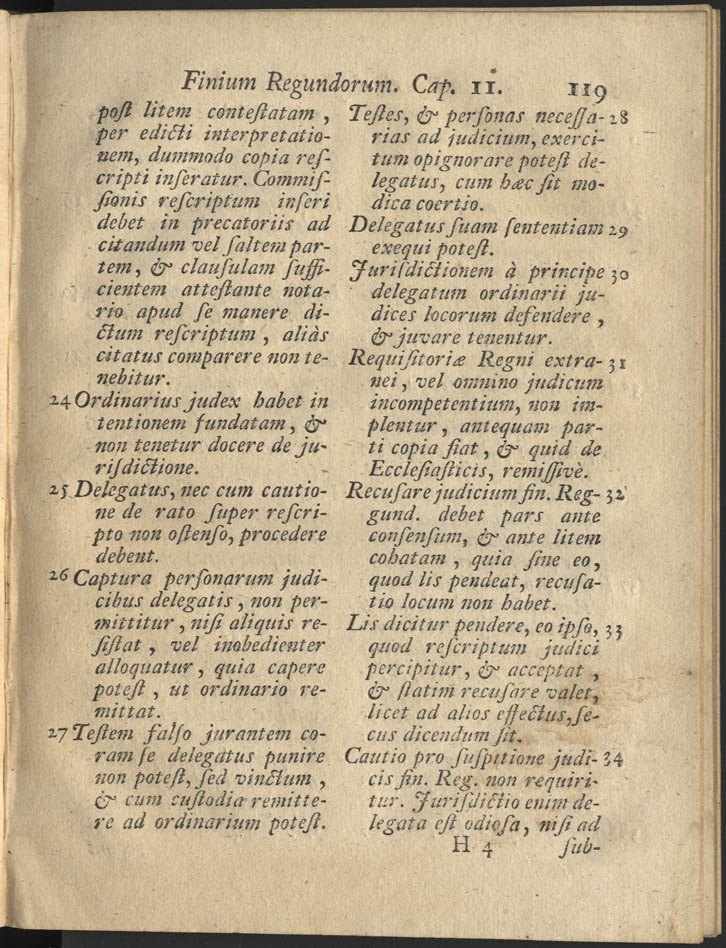 Finium Regundorum. Cap. II. 119
poſt litem conteſtatam ,
per edicti interpretatio-
nem, dummodo copia reſ-
cripti inſeratur. Commiſ-
ſionis reſcriptum inſeri
debet in precatoriis ad
citandum vel ſaltem par-
tem, & clauſulam ſuffi-
cientem atteſtante nota-
rio apud ſe manere di-
ctum reſcriptum , aliàs
citatus comparere non te-
nebitur.
24 Ordinarius judex habet in
tentionem fundatam , &
non tenetur docere de ju-
riſdictione.
25 Delegatus, nec cum cautio-
ne de rato ſuper reſcri-
pto non oſtenſo, procedere
debent.
26 Captura perſonarum judi-
cibus delegatis , non per-
mittitur , niſi aliquis re-
ſiſtat , vel inobedienter
alloquatur , quia capere
poteſt , ut ordinario re-
mittat.
27 Teſtem falſo jurantem co-
ram ſe delegatus punire
non poteſt, ſed vinctum ,
& cum cuſtodia remitte-
re ad ordinarium poteſt.
Teſtes, & perſonas neceſſa- 28
rias ad judicium, exerci-
tum opignorare poteſt de-
legatus, cum hæc ſit mo-
dica coertio.
Delegatus ſuam ſententiam 29
exequi poteſt.
Juriſdictionem à principe 30
delegatum ordinarii ju-
dices locorum defendere ,
& juvare tenentur.
Requiſitoriæ Regni extra- 31
nei , vel omnino judicum
incompetentium, non im-
plentur , antequam par-
ti copia fiat , & quid de
Eccleſiaſticis, remiſſivè.
Recuſare judicium fin. Reg- 32
gund. debet pars ante
conſenſum, & ante litem
cohatam , quia ſine eo,
quod lis pendeat, recuſa-
tio locum non habet.
Lis dicitur pendere, eo ipſo, 33
quod reſcriptum judici
percipitur, & acceptat ,
& ſtatim recuſare valet,
licet ad alios effectus, ſe-
cus dicendum ſit.
Cautio pro ſuſpitione judi- 34
cis fin. Reg. non requiri-
tur. Juriſdictio enim de-
legata eſt odioſa, niſi ad
H 4 ſub-